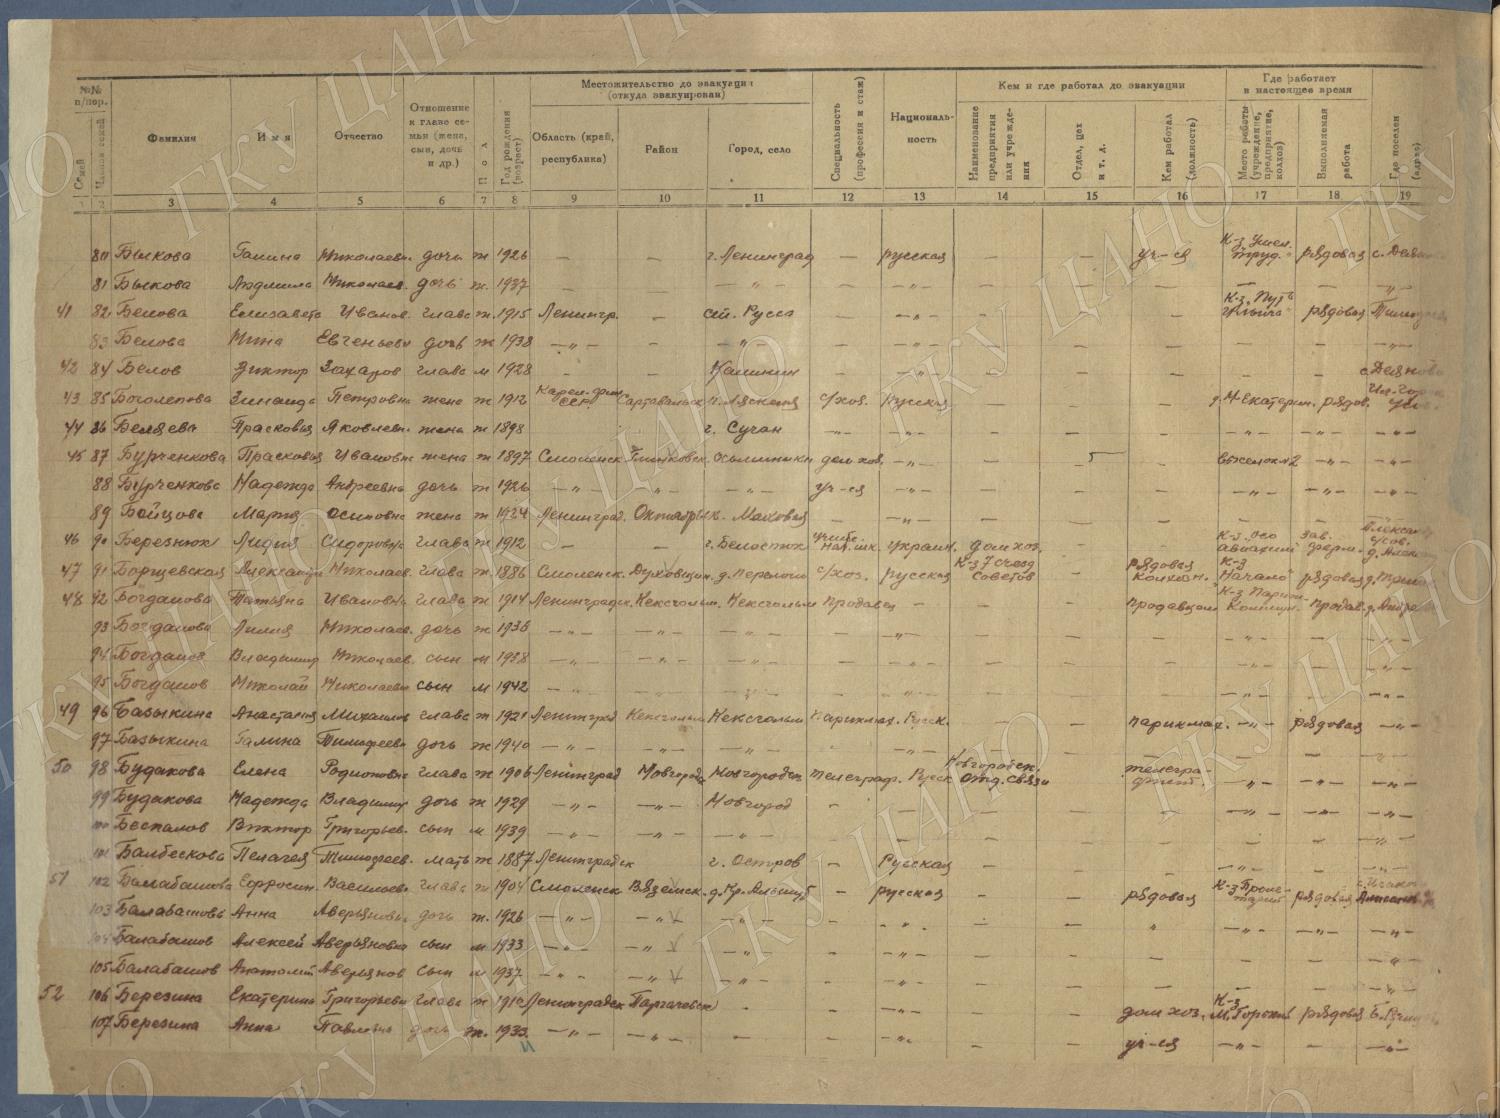 №№ п/пор.
Семей
Членов семей
Фамилия
Имя
Отчество
Отношение к главе семьи (жена, сын, дочь и др.)
Пол
Год рождения (возраст)
Местожительство до эвакуации (откуда эвакуирован)
Область (край, республика)
Район
Город, село
Специальность (профессия и стаж)
Националь-ность
Кем и где работал до эвакуации
Наименование предприятия или учрежде-ния
Отдел, цех и т. д.
Кем работал (должность)
Где работает в настоящее время
Место работы (учреждение, предприятие, колхоз)
Выполняемая работа
Где поселен (адрес)
1 2 3 4 5 6 7 8 9 10 11 12 13 14 15 16 17 18 19
80 Быкова Галина Николаевн. дочь ж 1926 — — г. Ленинград — русская — — уч-ся К-з труд." рядовая
81 Быкова Людмила Николаев. дочь ж. 1937 — — — " — — — " — — — — — — — " —
41 82 Белова Елизавета Иванов. глава ж. 1915 Ленингр. — ст. Русса — — " — — — — К-з „Путь Ильича" рядовая
83 Белова Нина Евгеньевн дочь ж 1938 — " — — — " — — — " — — — — — — — " —
42 84 Белов Виктор Захаров глава м 1928 — — Калинин — — " — — — — — — с. Деяново
43 85 Боголепова Зинаида Петровна жена ж 1912 Карел-фин. ССР Сартавальск с/хоз. русская — — — д. Н-Екатерин. рядов.
44 86 Беляева Прасковья Яковлевн жена ж 1898 г. Сучан — " — — " — — — — — " — — " — — " —
45 87 Бурченкова Прасковья Ивановна жена ж 1897 Смоленск домхоз. — " — — — — выселок №2 — " — — " —
88 Бурченкова Надежда Андреевна дочь ж 1926 — " — — " — — " — уч-ся — " — — — — — " — — " — — " —
89 Бойцова Мария Осиповна жена ж 1924 Ленинград. Октябрьск. Маховая — — " — — — — — — — " —
46 90 Березнюк Лидия Сидоровна глава ж 1912 — — г. Белосток украин. домхоз. — — К-з Осо авиахим зав. ферм.
47 91 Борщевская Александра Николаев. глава ж 1886 Смоленск. Духовщин. с/хоз. русская К-з 7 съезд Советов — рядовая колхозн. К-з „Начало" рядовая
48 92 Богданова Татьяна Ивановна глава ж 1914 Ленинградск. Кексгольм. Кексгольм продавец — — — продавцом К-з Париж. Коммун. продав.
93 Богданова Лилия Николаев. дочь ж 1936 — " — — " — — " — — — " — — — — — " — — — " —
94 Богданов Владимир Николаев. сын м 1938 — " — — " — — " — — — " — — — — — " — — — " —
95 Богданов Николай Николаевич сын м 1942 — " — — " — — " — — — " — — — — — " — — — " —
49 96 Базыкина Анастасия Михайлов глава ж 1921 Ленинград Кексгольм Кексгольм парикмах. Русск. — — парикмах. — " — рядовая — " —
97 Базыкина Галина Тимофеевн дочь ж 1940 — " — — " — — " — — — " — — — — — " — — — " —
50 98 Будакова Елена Родионовна глава ж 1906 Ленинград Новгород Новгородск телеграф. Русск Новгородск. отд. связи — телегра- — " — — " — — " —
99 Будакова Надежда Владимир дочь ж 1929 — " — — " — Новгород — — — — — — " — — " — — " —
100 Беспалов Виктор Григорьев. сын м 1939 — " — — " — — " — — — — — — — — — " —
101 Балбескова Пелагея Тимофеев. мать ж 1887 Ленинградск г. Остров — Русская — — — — " — — — " —
51 102 Балабашова Ефросин. Васильевн глава ж 1904 Смоленск Вяземск. — русская — — рядовая К-з Проле-тарий рядовая
103 Балабашова Анна Аверьяновн. дочь ж. 1926 — " — — " — — " — — — " — — — " — " — — " — — " —
104 Балабашов Алексей Аверьянович сын м 1933 — " — — " — — " — — — " — — — — — " — — — " —
105 Балабашов Анатолий Аверьянов сын м 1937 — " — — " — — " — — — " — — — — — — — " —
52 106 Березина Екатерина Григорьевн глава ж 1910 Ленинградск — — — " — — — домхоз. К-з М. Горький рядовая
107 Березина Анна Павловна дочь ж. 1933 — " — — " — — — — " — — — уч-ся — " — — — " —
ГКУ ЦАНО